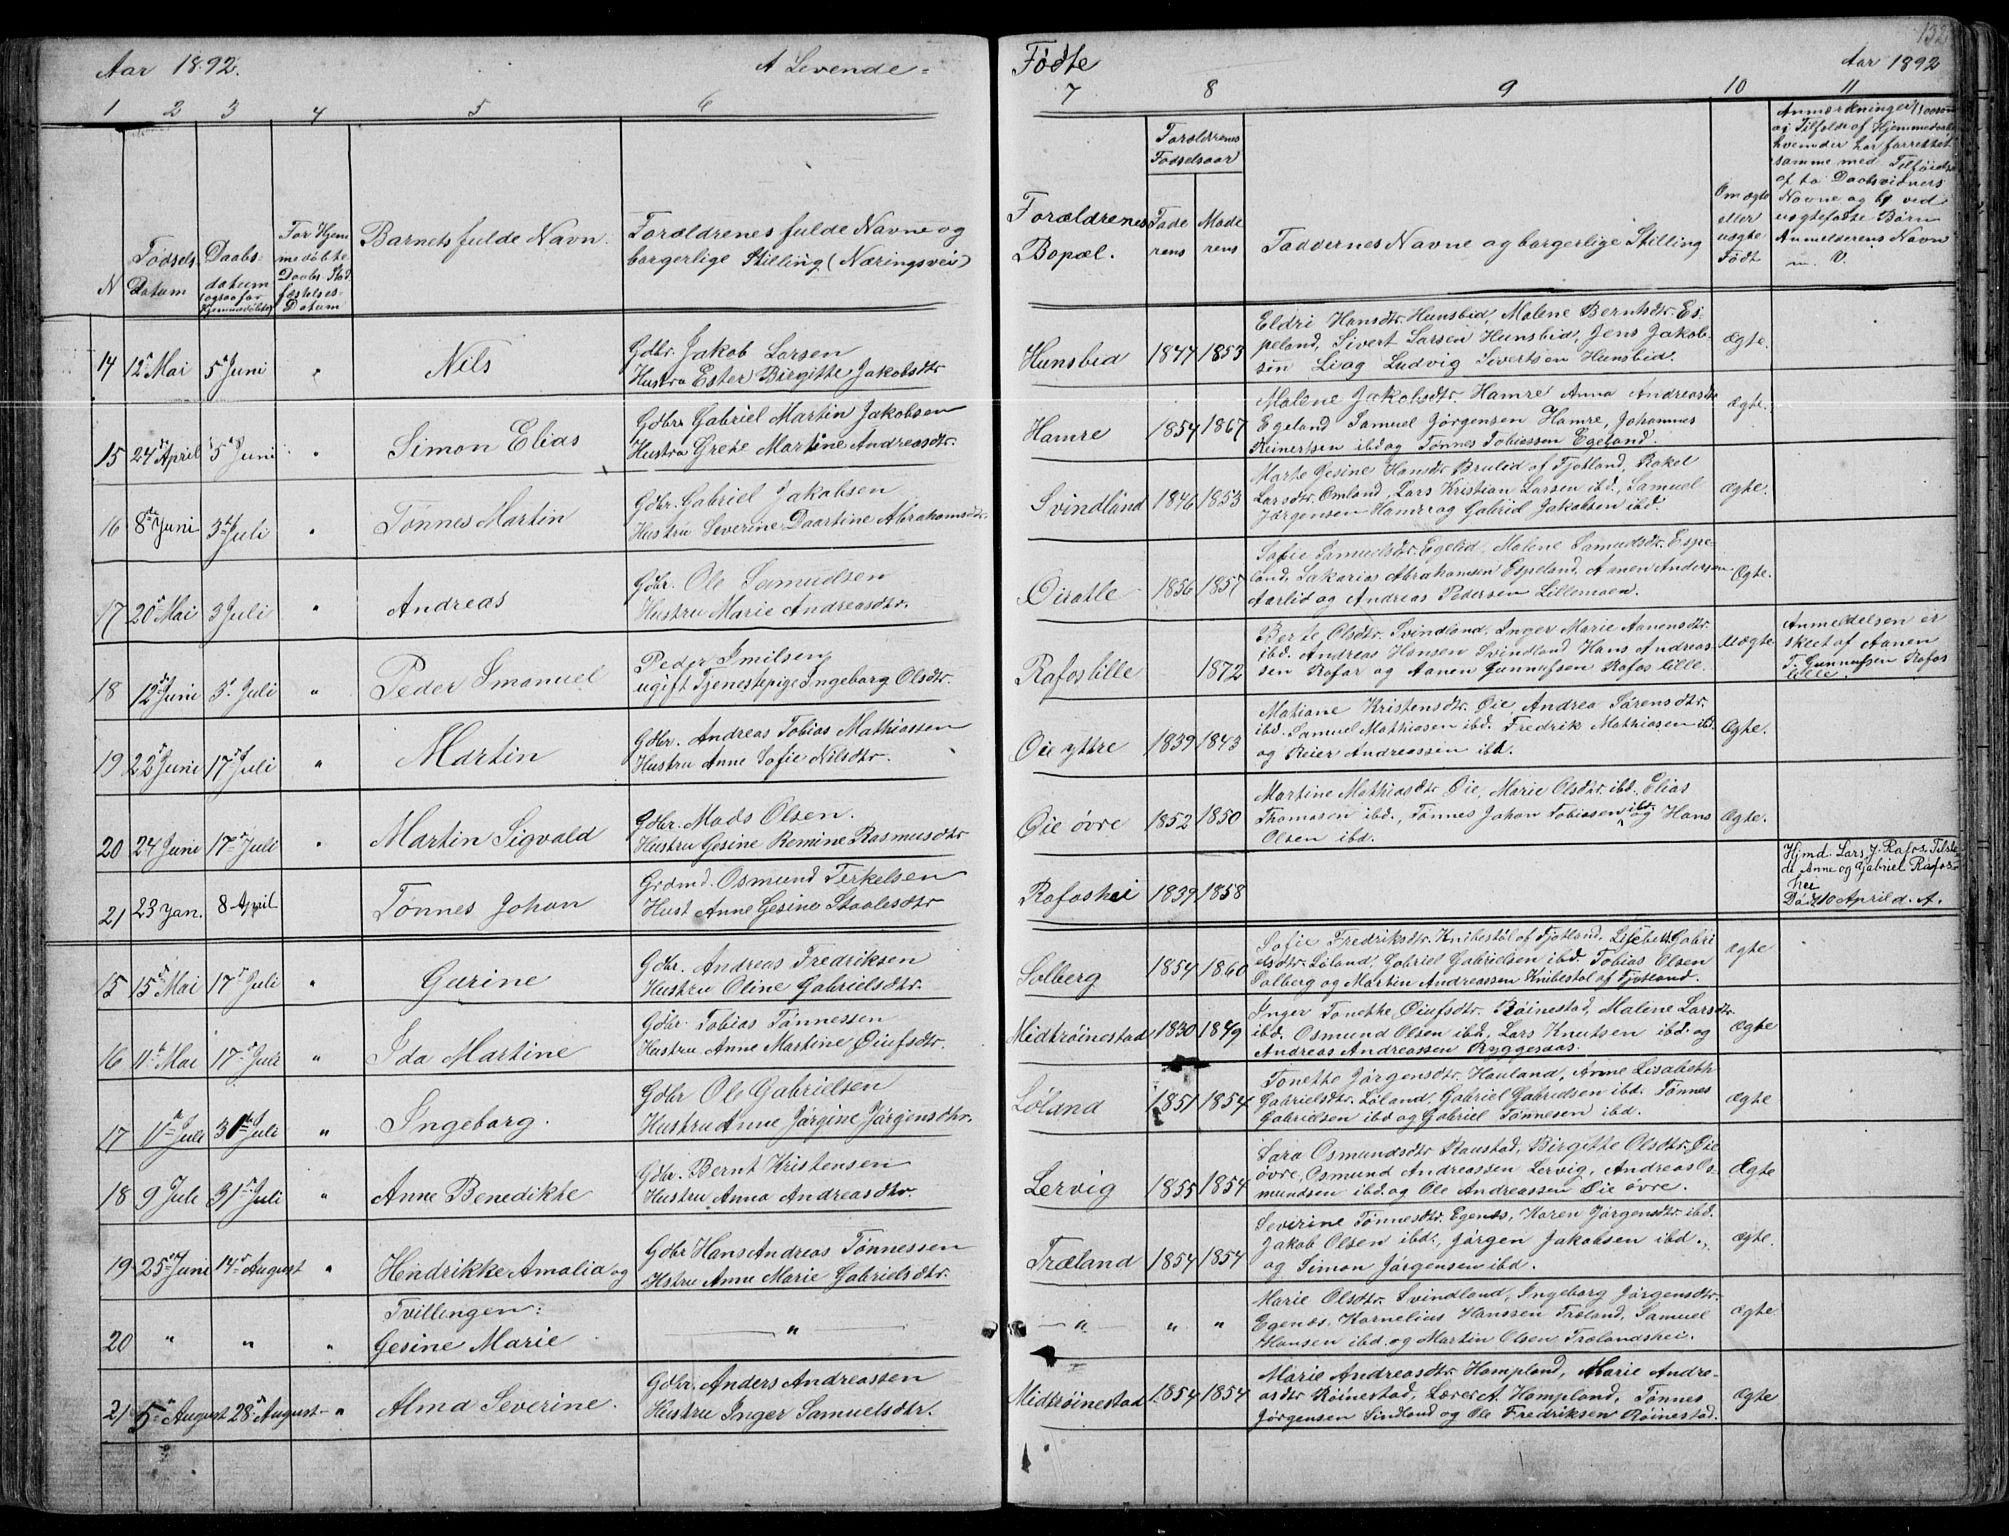 Aar 1892.
A Levende =
Födte
Aar 1892
132
1 2 3 4 5 6
7 8 9 10 11
N
Födsels Datum
Daabs-datum (ogsaa for Hjemmedöbte)
For Hjemmedöbte Daabs Stadfæstelses-Datum
Barnets fulde Navn.
Forældrenes fulde Navne og borgerlige Stilling (Næringsvei)
Forældrenes Bopæl.
Forældrenes Födselsaar
Faderens
Moderens
Faddernes Navne og borgerlige Stilling
Om ægte eller uægte Födt
Anmærkninger
og i Tilfælde af Hjemmedaab
hvem der har forrettet
samme med Tilföielse
af to Daabsvidners
Navne og ved
uægtefödte Börn
Anmelderens Navn
m. V.
14 12te Mai 5te Juni " Nils
Gdbr. Jakob Larsen
Hustru Ester Birgitte Jakobsdtr
Hunsbed 1847 1853
Eldri Hansdtr. Hunsbed, Malene Berntsdtr. Es-
peland, Sivert Larsen Hunsbed, Jens Jakob-
sen Li og Ludvig Sivertsen Hunsbed.
Ægte.
15 24de April 5te Juni " Simon Elias
Gdbr. Gabriel Martin Jakobsen
Hustru Grete Martine Andreasdtr.
Hamre 1854 1867
Malene Jakobsdtr. Hamre Anna Andreasdtr
Egeland Samuel Jörgensen Hamre, Johannes
Reinertsen ibd og Tönnes Tobiassen Egeland.
Ægte.
16 8de Juni 3die Juli " Tönnes Martin
Gdbr. Gabriel Jakobsen
Hustru Severine Daartine Abrahamsdtr.
Svindland 1846 1853
Marte Gesine Hansdtr Brulid af Fjotland, Rakel
Larsdtr. Omland, Lars Kristian Larsen ibd., Samuel
Jörgensen Hamre og Gabriel Jakobsen ibd.
Ægte.
17 20de Mai 3 Juli " Andreas
Gdbr. Ole Samuelsen
Hustru Marie Andreasdtr.
1856 1857
Sofie Samuelsdtr. Egelid, Malene Samuelsdtr. Espe-
land, Sakarias Abrahamsen Espeland, Aanen Andersen
Aarlid og Andreas Pedersen Lillemoen.
Ægte.
18 12te Juni 3d. Juli " Peder Emanuel
Peder Emilsen
ugift Tjenestepige Ingeborg Olsdtr.
Rafos lille 1872
Berte Olsdtr. Svindland, Inger Marie Aanensdtr.
ibd. Andreas Hansen Svindland Hans Andreas-
sen Rafos og Aanen Gunnufsen Rafos lille.
Uægte.
Anmeldelsen er
skeet af Aanen
T. Gunnufsen Rafos
lille.
19 22de Juni 17de Juli " Martin
Gdbr. Andreas Tobias Mathiassen
Hustru Anne Sofie Nilsdtr.
Öie yttre 1839 1843
Matiane Kristensdtr. Öie, Andrea Sörensdtr.
ibd. Samuel Mathiasen ibd. Fredrik Mathiasen ibd.
og Reier Andreassen ibd.
Ægte.
20 24 Juni 17de Juli " Martin Sigvald
Gdbr. Mads Olsen.
Hustru Gesine Remine Rasmusdtr
Öie övre 1852 1850
Martine Mathiasdtr Öie, Marie Olsdtr. ibd. Elias
Thomasen ibd., Tönnes Johan Tobiasen ibd. og Hans
Olsen ibd.
Ægte.
21 23 Jan. 8 April Tönnes Johan
Grdmd. Osmund Terkelsen
Hust Anne Gesine Staalesdtr
Rafoshei 1839 1858
Hjmd. Lars J. Rafos. Tilste-
de Anne og Gabriel Rafos-
hei
Död 10 April d. A.
15 15de Mai 17de Juli " Gurine
Gdbr. Andreas Fredriksen
Hustru Oline Gabrielsdtr.
Solberg 1854 1860
Sofie Fredriksdtr. Knibestöl af Fjotland, Lisebett Gabri-
elsdtr. Löland, Gabriel Gabrielsen ibd. Tobias Olsen
Solberg og Martin Andreassen Knibestöl af Fjotland.
Ægte
16 11te Mai 17de Juli " Ida Martine
Gdbr. Tobias Tönnessen
Hustru Anne Martine Öiufsdtr.
Midtröinestad 1830 1849
Inger Tonette Öiufsdtr. Röinestad, Malene Larsdtr
ibd. Osmund Olsen ibd., Lars Knutsen ibd. og
Andreas Andreassen Ryggesaas.
Ægte
17 1te Juli 31te Juli " Ingeborg.
Gdbr Ole Gabrielsen
Hustru Anne Jörgine Jörgensdtr.
Löland 1851 1854
Tonette Jörgensdtr. Hauland, Anne Lisabeth
Gabrielsdtr. Löland, Gabriel Gabrielsen ibd. Tönnes
Gabrielsen ibd og Gabriel Tönnesen ibd.
Ægte
18 9 Juli 31te Juli " Anne Benedikte
Gdbr. Bernt Kristensen
Hustru Anna Andreasdtr.
Lervig 1855 1854
Sara Osmundsdtr Raustad, Birgitte Olsdtr. Öie
övre, Osmund Andreassen Lervig, Andreas Os-
mundsen ibd. og Ole Andreassen Öie övre.
Ægte
19 25de Juni 14de August " Hendrikke Amalia og
Gdbr Hans Andreas Tönnessen
Hstru Anne Marie Gabrielsdtr.
Træland 1854 1854
Severine Tönnesdtr. Egenes, Karen Jörgensdtr ibd.
Jakob Olsen ibd., Jörgen Jakobsen ibd.,
og Simon Jörgensen ibd.
Ægte.
Tvillingen:
20 " " " Gesine Marie — " —
— " — " "
Marie Olsdtr. Svindland, Ingeborg Jörgensdtr.
Egenes, Kornelius Hanssen Træland, Samuel
Hansen ibd. og Martin Olsen Trælandshei.
Ægte
21 5te August 28de August " Alma Severine.
Gdbr. Anders Andreassen
Hustru Inger Samuelsdtr.
Midtröinestad 1854 1854
Marie Andreasdtr. Hompland, Marie Andre-
asdtr Röinestad, Lærer A. Hompland, Tönnes
Jörgensen Sindland og Ole Fredriksen Röinestad.
Ægte